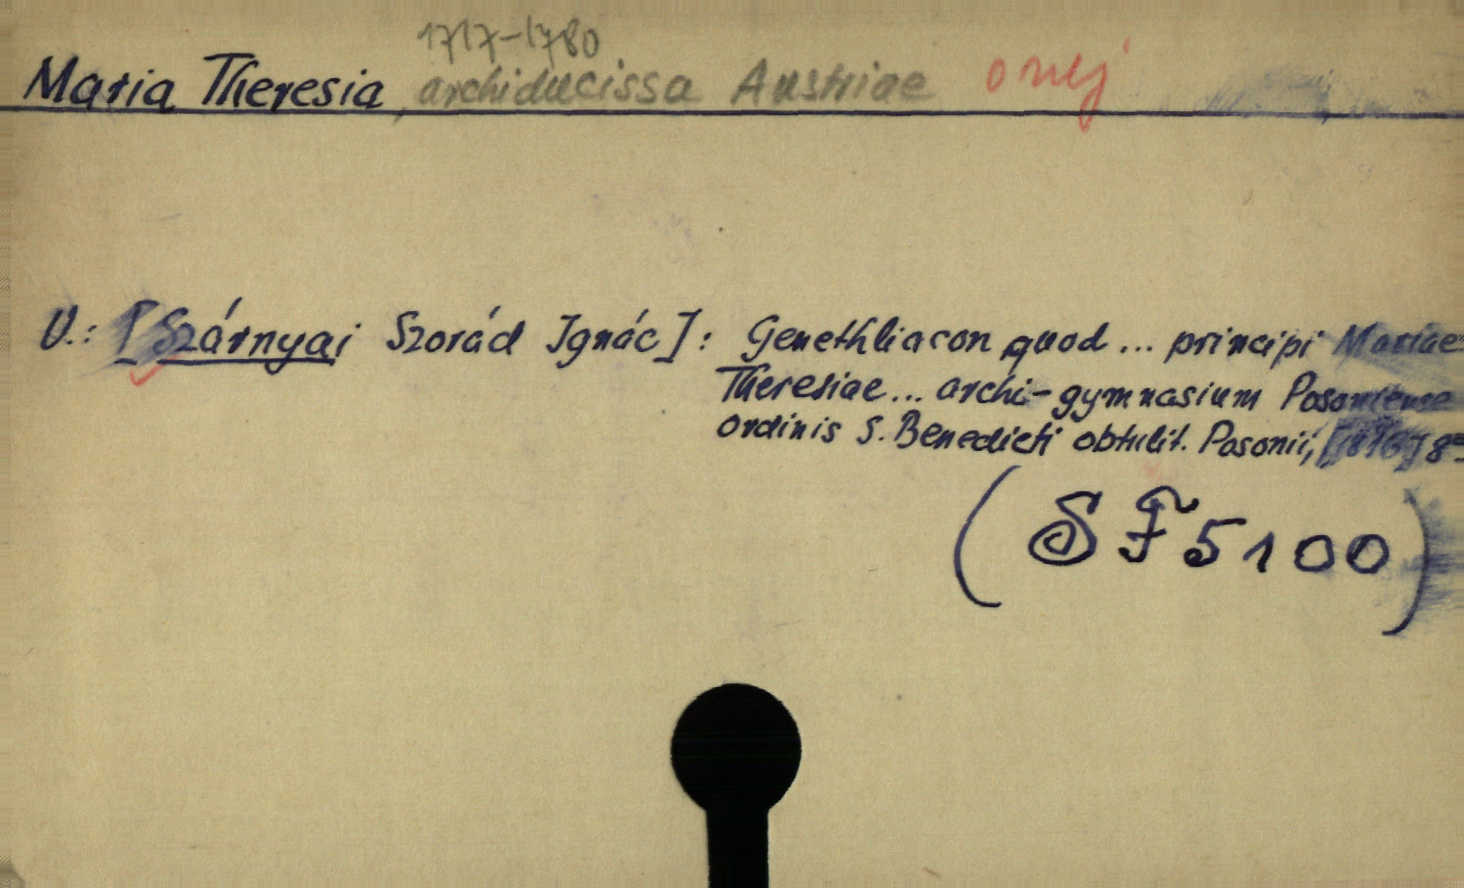 1717-1780
Maria Theresia, archiducissa Austriae
V.: [Szárnyai Szorád Ignác]: Genethliacon quod ... principi Mariae
Theresiae ... archi-gymnasium Posoniense
ordinis S. Benedicti obtulit. Posonii, 8°
(SF 5100)